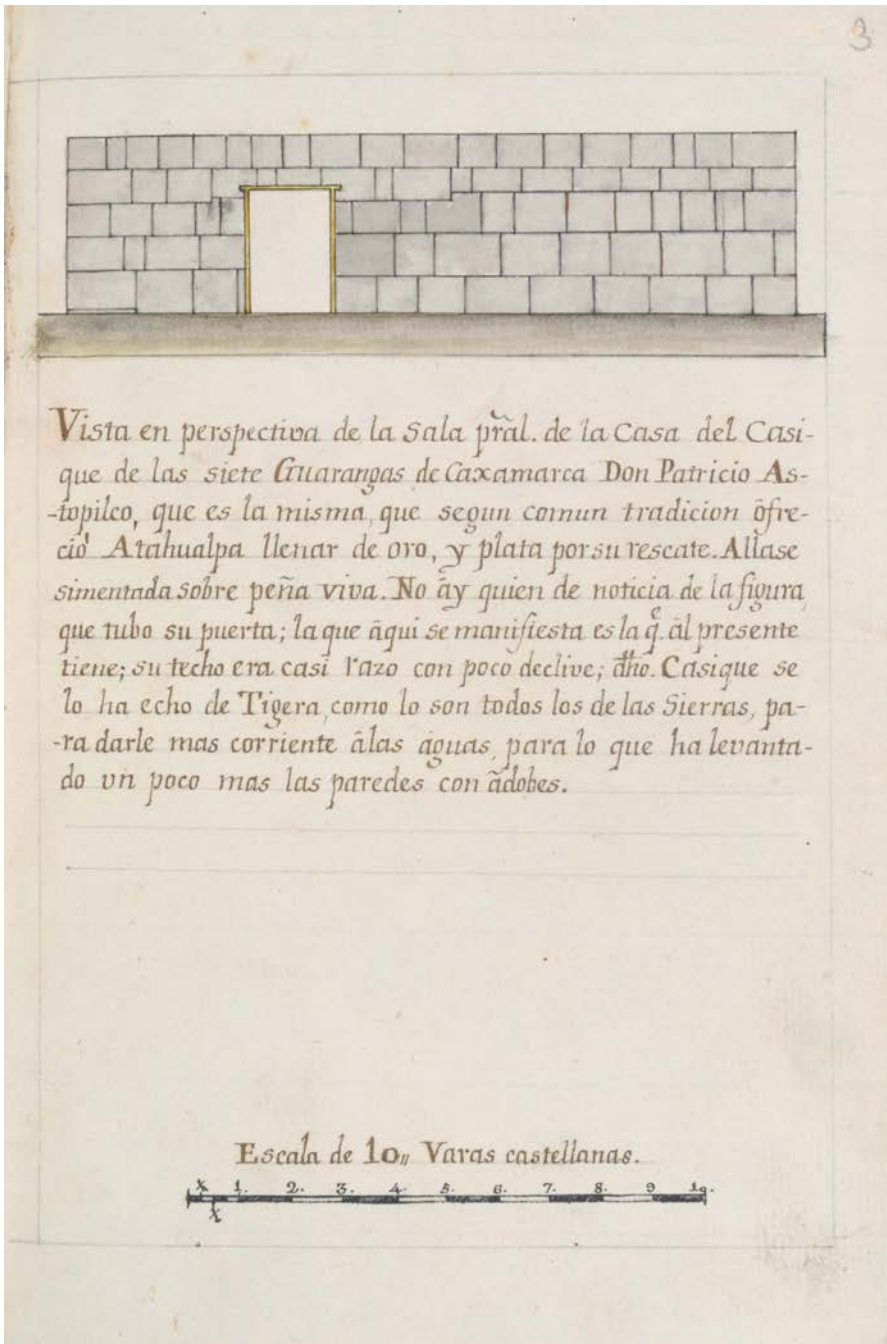 3
Vista en perspectiva de la Sala prãl. de la Casa del Casi-
que de las siete Guarangas de Caxamarca Don Patricio As-
-topilco, que es la misma, que segun comun tradicion ôfre-
ció Atahualpa llenar de oro, y plata por su rescate. Allase
simentada sobre peña viva. No ây quien de noticia de la figura,
que tubo su puerta; la que âqui se manifiesta es la q.e âl presente
tiene; su techo era casi razo con poco declive; dho. Casique se
lo ha echo de Tigera, como lo son todos los de las Sierras, pa-
-ra darle mas corriente âlas aguas, para lo que ha levanta-
do un poco mas las paredes con âdobes.
Escala de 10,, Varas castellanas.
1. 2. 3. 4. 5. 6. 7. 8. 9 10.